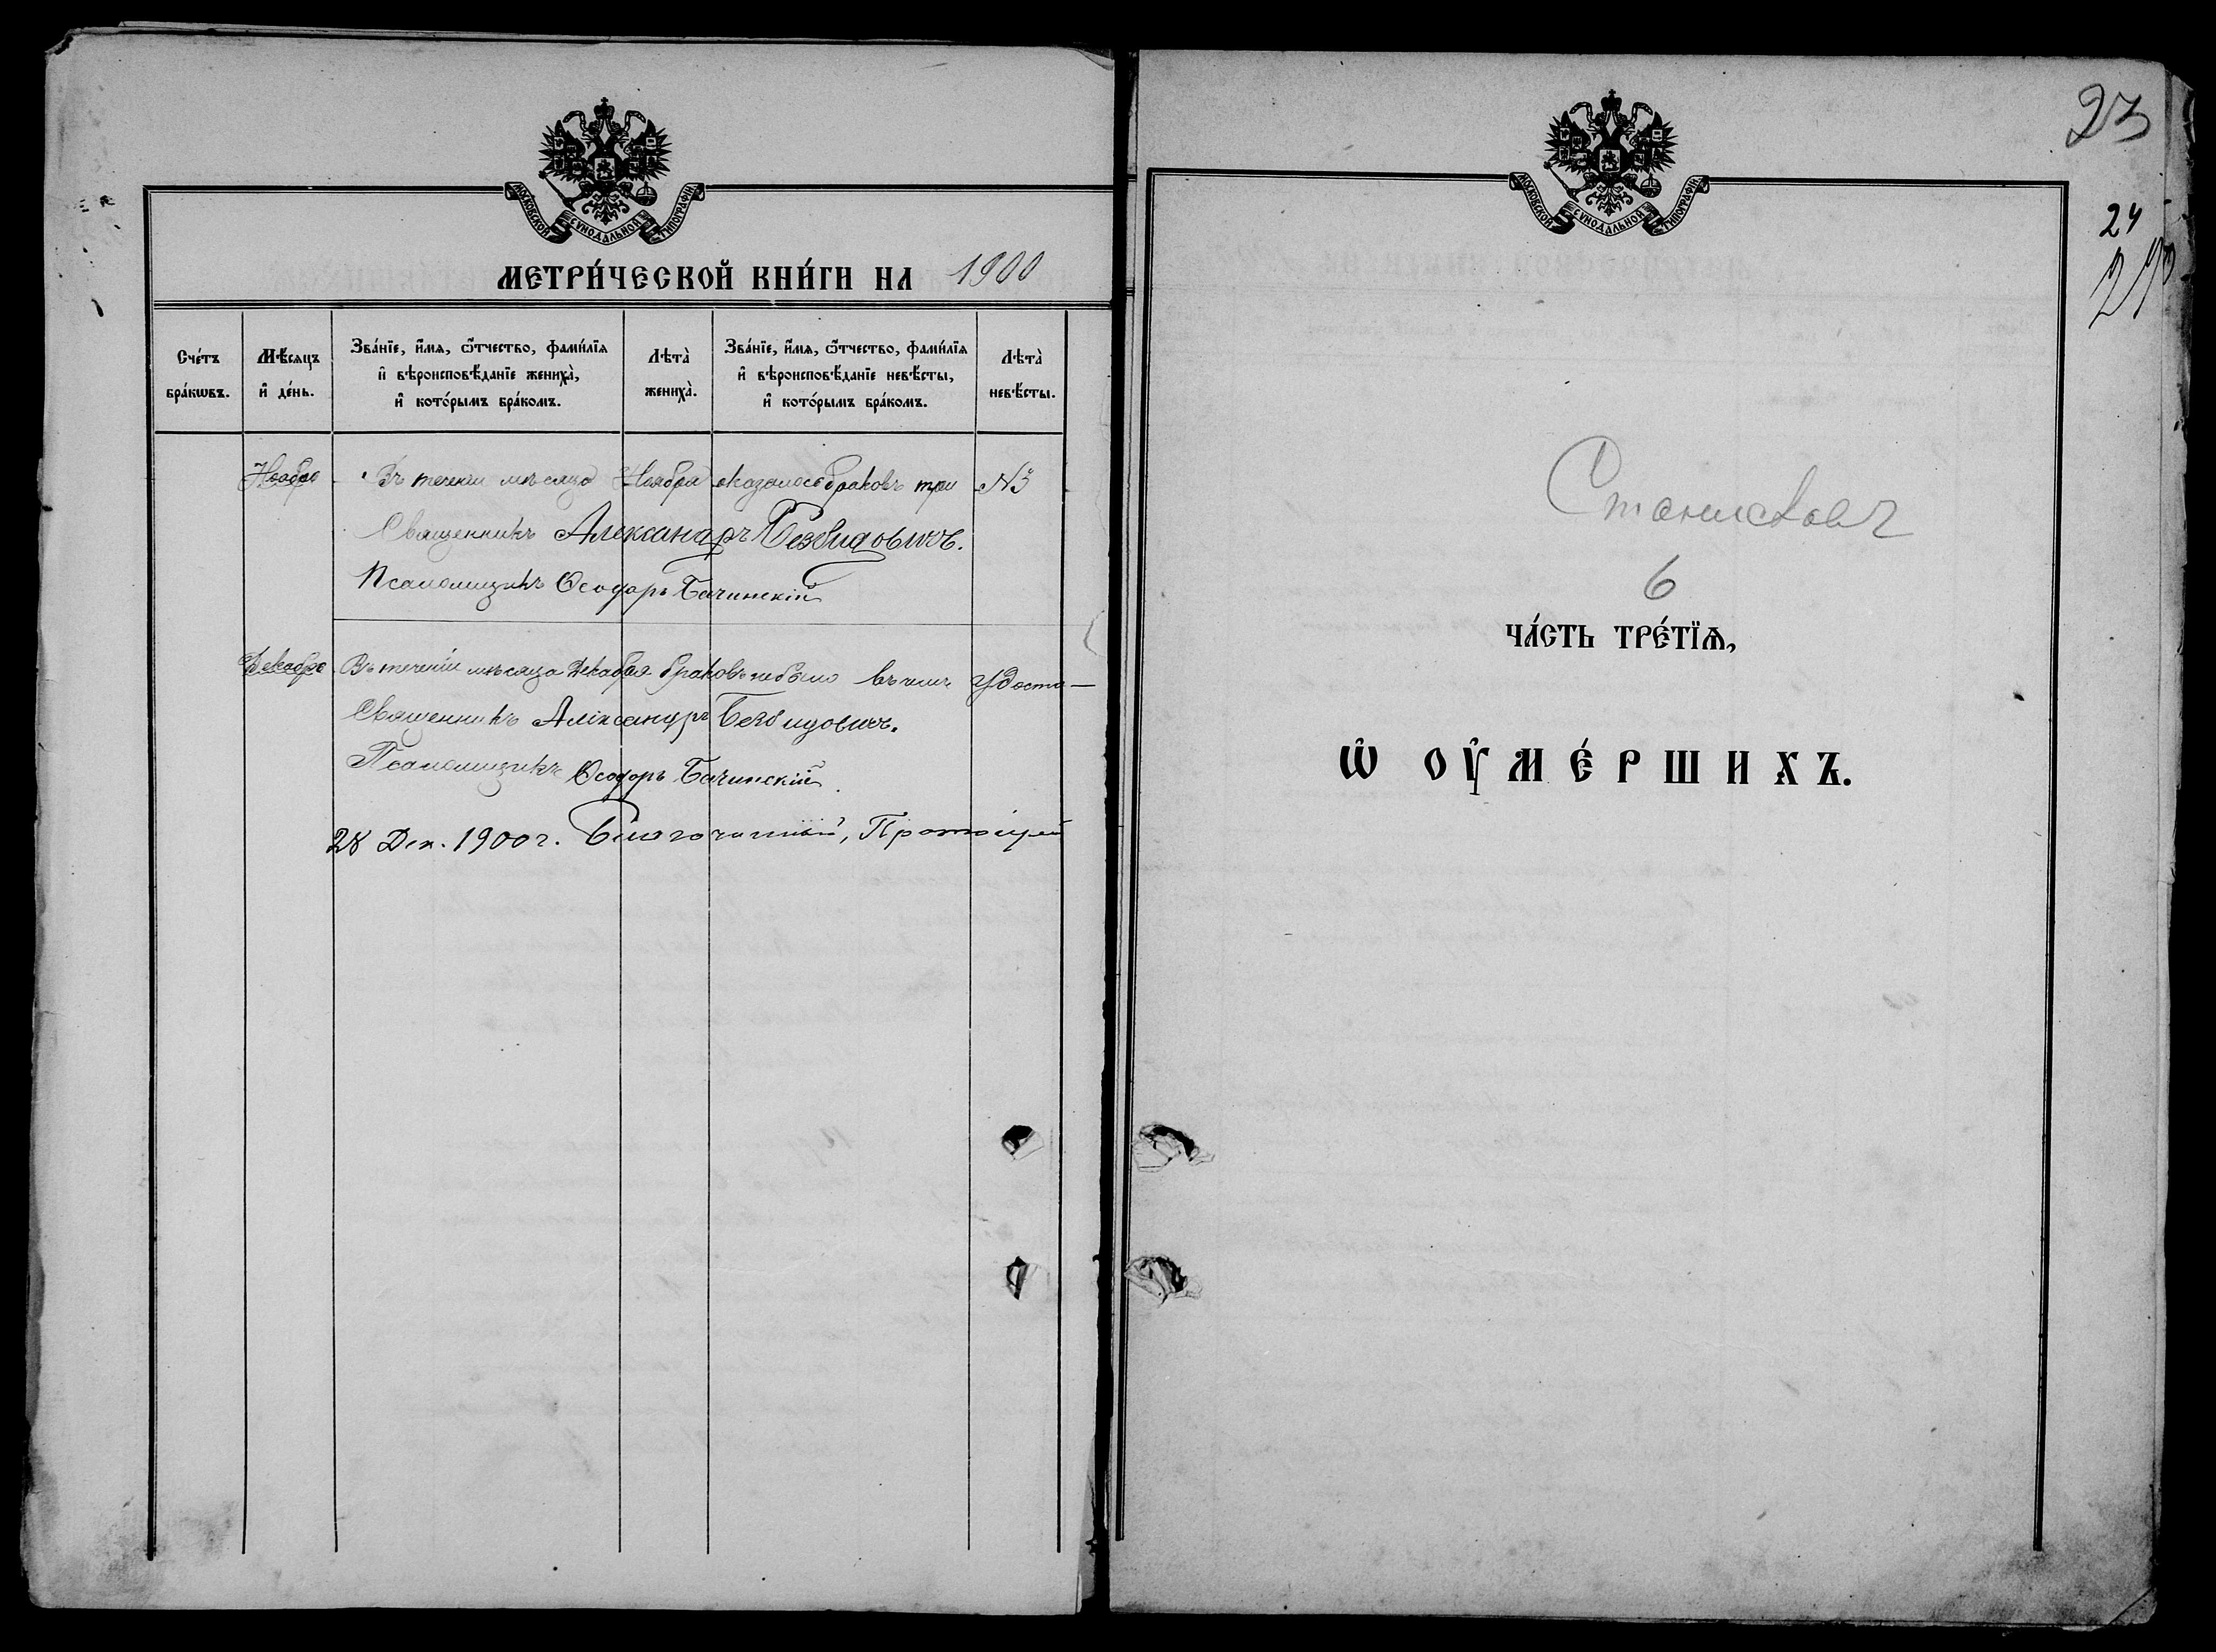 МОСКОВСКОЙ СѴНОДАЛЬНОЙ ТИПОГРАФІИ.
МЕТРИ́ЧЕСКОЙ КНИ́ГИ НА 1900
Сче́тъ бра́кѡвъ.
Мѣ́сяцъ и҆ де́нь.
Зва́нїе, и҆́мѧ, ѻ҆́тчество, фами́лїѧ и҆ вѣроисповѣ́данїе жениха̀, и҆ кото́рымъ бра́комъ.
Лѣта̀ жениха̀.
Зва́нїе, и҆́мѧ, ѻ҆́тчество, фами́лїѧ и҆ вѣроисповѣ́данїе невѣ́сты, и҆ кото́рымъ бра́комъ.
Лѣта̀ невѣ́сты.
Ноябрь Въ теченіи мѣсяца Ноября оказалось браковъ три №3
Священникъ Александръ Безвидовичъ.
Псаломщикъ Ѳеодоръ Бачинскій
Декабрь Въ теченіи мѣсяца Декабря браковъ небыло въ чемъ удосто—
Священникъ Александръ Безвидовичъ.
Псаломщикъ Ѳеодоръ Бачинскій.
28 Дек. 1900 г. Благочинный, Протоіерей
МОСКОВСКОЙ СѴНОДАЛЬНОЙ ТИПОГРАФІИ.
23
24
Станиславъ
6
ЧА́СТЬ ТРЕ́ТЇѦ,
Ѽ ОУ҆МЕ́РШИХЪ.